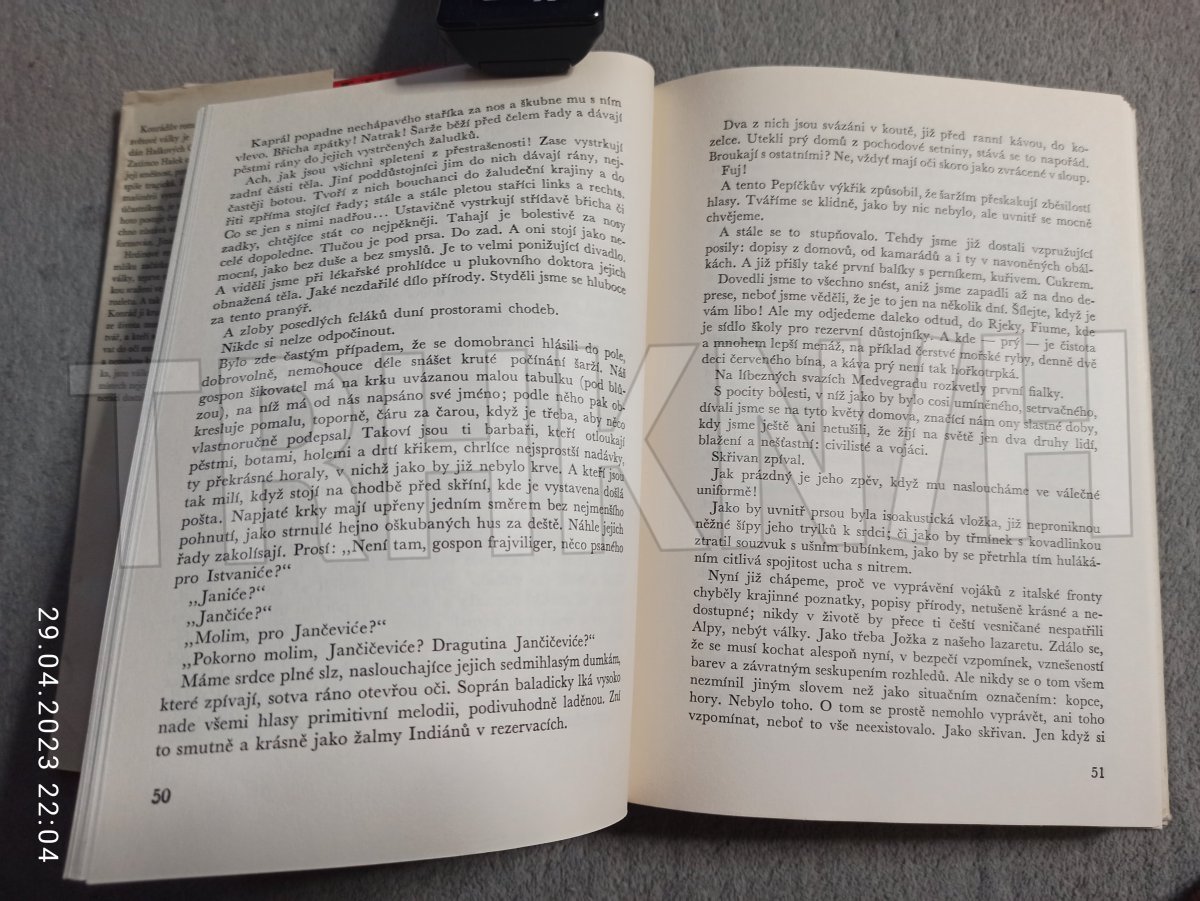 Konrádův rom
světové války je
dán Haškových
Zatímco Hašek
její směšnost, p
spíše tragiku.
Kaprál popadne nechápavého staříka za nos a škubne mu s ním
vlevo. Břicha zpátky! Natrak! Šarže běží před čelem řady a dávají
pěstmi rány do jejich vystrčených žaludků.
Ach, jak jsou všichni spleteni z přestrašenosti! Zase vystrkují
zadní části těla. Jiní poddůstojníci jim do nich dávají rány, nej-
častěji botou. Tvoří z nich bouchanci do žaludeční krajiny a do
řiti zpříma stojící řady; stále a stále pletou staříci links a rechts.
Co se jen s nimi nadřou... Ustavičně vystrkují střídavě břicha či
zadky, chtějíce stát co nejpěkněji. Tahají je bolestivě za nosy
celé dopoledne. Tlučou je pod prsa. Do zad. A oni stojí jako ne-
mocní, jako bez duše a bez smyslů. Je to velmi ponižující divadlo.
A viděli jsme při lékařské prohlídce u plukovního doktora jejich
obnažená těla. Jaké nezdařilé dílo přírody. Styděli jsme se hluboce
za tento pranýř.
A zloby posedlých feláků duní prostorami chodeb.
Nikde si nelze odpočinout.
Bylo zde častým případem, že se domobranci hlásili do pole,
dobrovolně, nemohouce déle snášet kruté počínání šarží. Náš
gospon šikovatel má na krku uvázanou malou tabulku (pod blů-
zou), na níž má od nás napsáno své jméno; podle něho pak ob-
kresluje pomalu, toporně, čáru za čarou, když je třeba, aby něco
vlastnoručně podepsal. Takoví jsou ti barbaři, kteří otloukají
pěstmi, botami, holemi a drtí křikem, chrlíce nejsprostší nadávky,
ty překrásné horaly, v nichž jako by již nebylo krve. A kteří jsou
tak milí, když stojí na chodbě před skříní, kde je vystavena došlá
pošta. Napjaté krky mají upřeny jedním směrem bez nejmenšího
pohnutí, jako strnulé hejno oškubaných hus za deště. Náhle jejich
řady zakolísají. Prosí: „Není tam, gospon frajviliger, něco psáného
pro Istvaniće?“
„Janiće?“
„Jančiće?“
„Molim, pro Jančeviće?“
„Pokorno molim, Jančičeviće? Dragutina Jančičeviće?“
Máme srdce plné slz, naslouchajíce jejich sedmihlasým dumkám,
které zpívají, sotva ráno otevřou oči. Soprán baladicky lká vysoko
nade všemi hlasy primitivní melodii, podivuhodně laděnou. Zní
to smutně a krásně jako žalmy Indiánů v rezervacích.
50
Dva z nich jsou svázáni v koutě, již před ranní kávou, do ko-
zelce. Utekli prý domů z pochodové setniny, stává se to napořád.
Broukají s ostatními? Ne, vždyť mají oči skoro jako zvrácené v sloup.
Fuj!
A tento Pepíčkův výkřik způsobil, že šaržím přeskakují zběsilostí
hlasy. Tváříme se klidně, jako by nic nebylo, ale uvnitř se mocně
chvějeme.
A stále se to stupňovalo. Tehdy jsme již dostali vzpružující
posily: dopisy z domovů, od kamarádů a i ty v navoněných obál-
kách. A již přišly také první balíky s perníkem, kuřivem. Cukrem.
Dovedli jsme to všechno snést, aniž jsme zapadli až na dno de-
prese, neboť jsme věděli, že je to jen na několik dní. Šílejte, když je
vám libo! Ale my odjedeme daleko odtud, do Rjeky, Fiume, kde
je sídlo školy pro rezervní důstojníky. A kde — prý — je čistota
a mnohem lepší menáž, na příklad čerstvé mořské ryby, denně dvě
deci červeného bína, a káva prý není tak hořkotrpká.
Na líbezných svazích Medvegradu rozkvetly první fialky.
S pocity bolesti, v níž jako by bylo cosi umíněného, setrvačného,
dívali jsme se na tyto květy domova, značící nám ony slastné doby,
kdy jsme ještě ani netušili, že žijí na světě jen dva druhy lidí,
blažení a nešťastní: civilisté a vojáci.
Skřivan zpíval.
Jak prázdný je jeho zpěv, když mu nasloucháme ve válečné
uniformě!
Jako by uvnitř prsou byla isoakustická vložka, již neproniknou
něžné šípy jeho trylků k srdci; či jako by třmínek s kovadlinkou
ztratil souzvuk s ušním bubínkem, jako by se přetrhla tím huláká-
ním citlivá spojitost ucha s nitrem.
Nyní již chápeme, proč ve vyprávění vojáků z italské fronty
chyběly krajinné poznatky, popisy přírody, netušeně krásné a ne-
dostupné; nikdy v životě by přece ti čeští vesničané nespatřili
Alpy, nebýt války. Jako třeba Jožka z našeho lazaretu. Zdálo se,
že se musí kochat alespoň nyní, v bezpečí vzpomínek, vznešeností
barev a závratným seskupením rozhledů. Ale nikdy se o tom všem
nezmínil jiným slovem než jako situačním označením: kopce,
hory. Nebylo toho. O tom se prostě nemohlo vyprávět, ani toho
vzpomínat, neboť to vše neexistovalo. Jako skřivan. Jen když si
51
TRHKNIH
29.04.2023 22:04